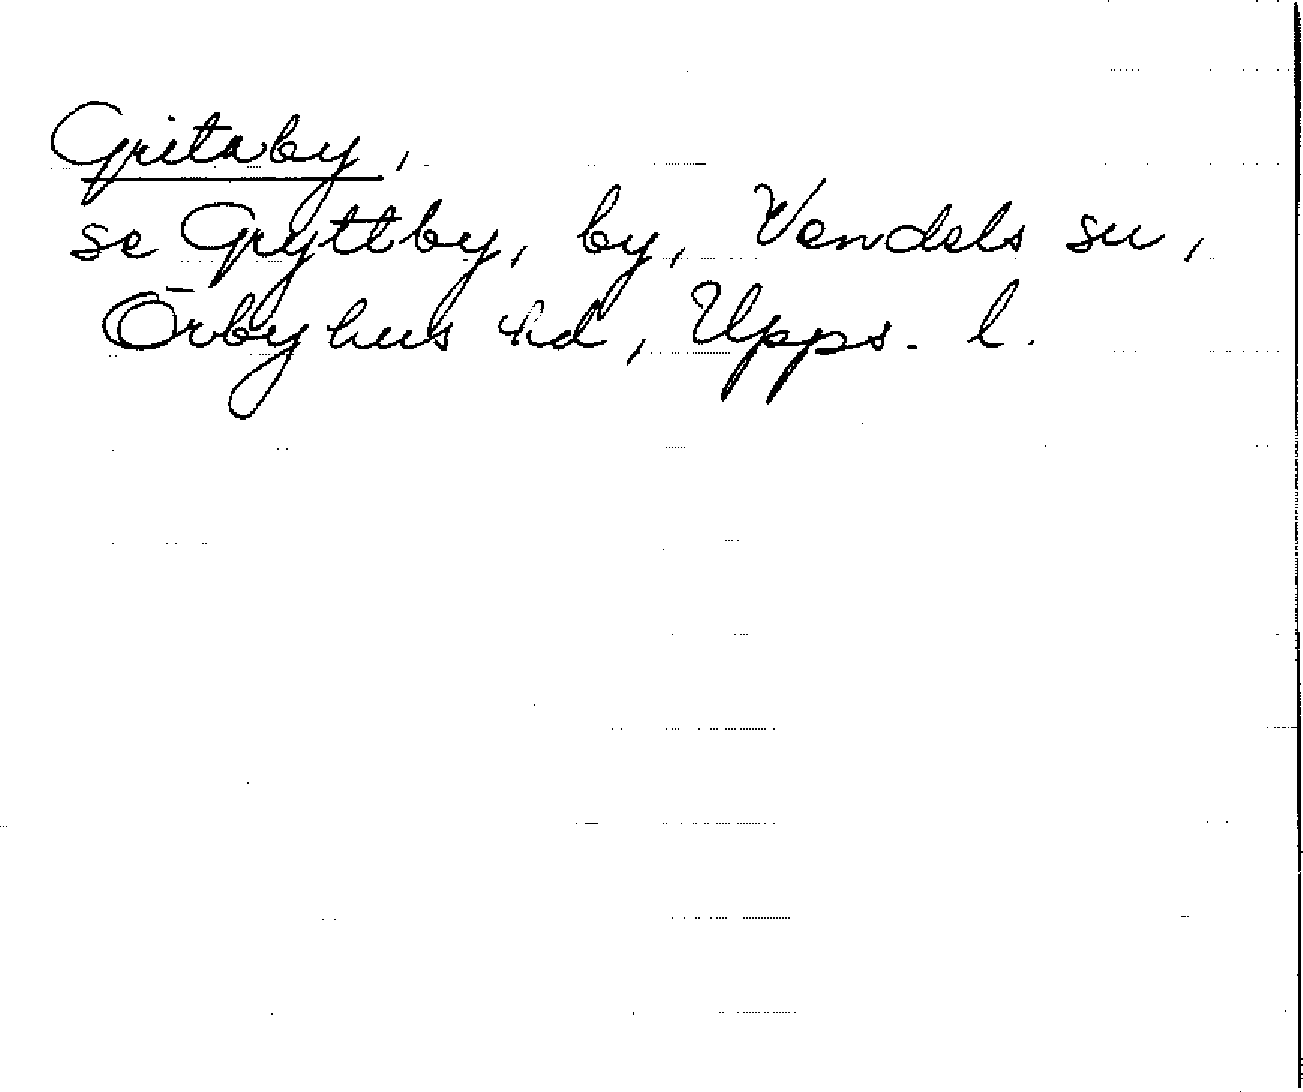 Gritaby,
se Gryttby, by, Vendels sn,
Örbyhus hd, Upps. l.